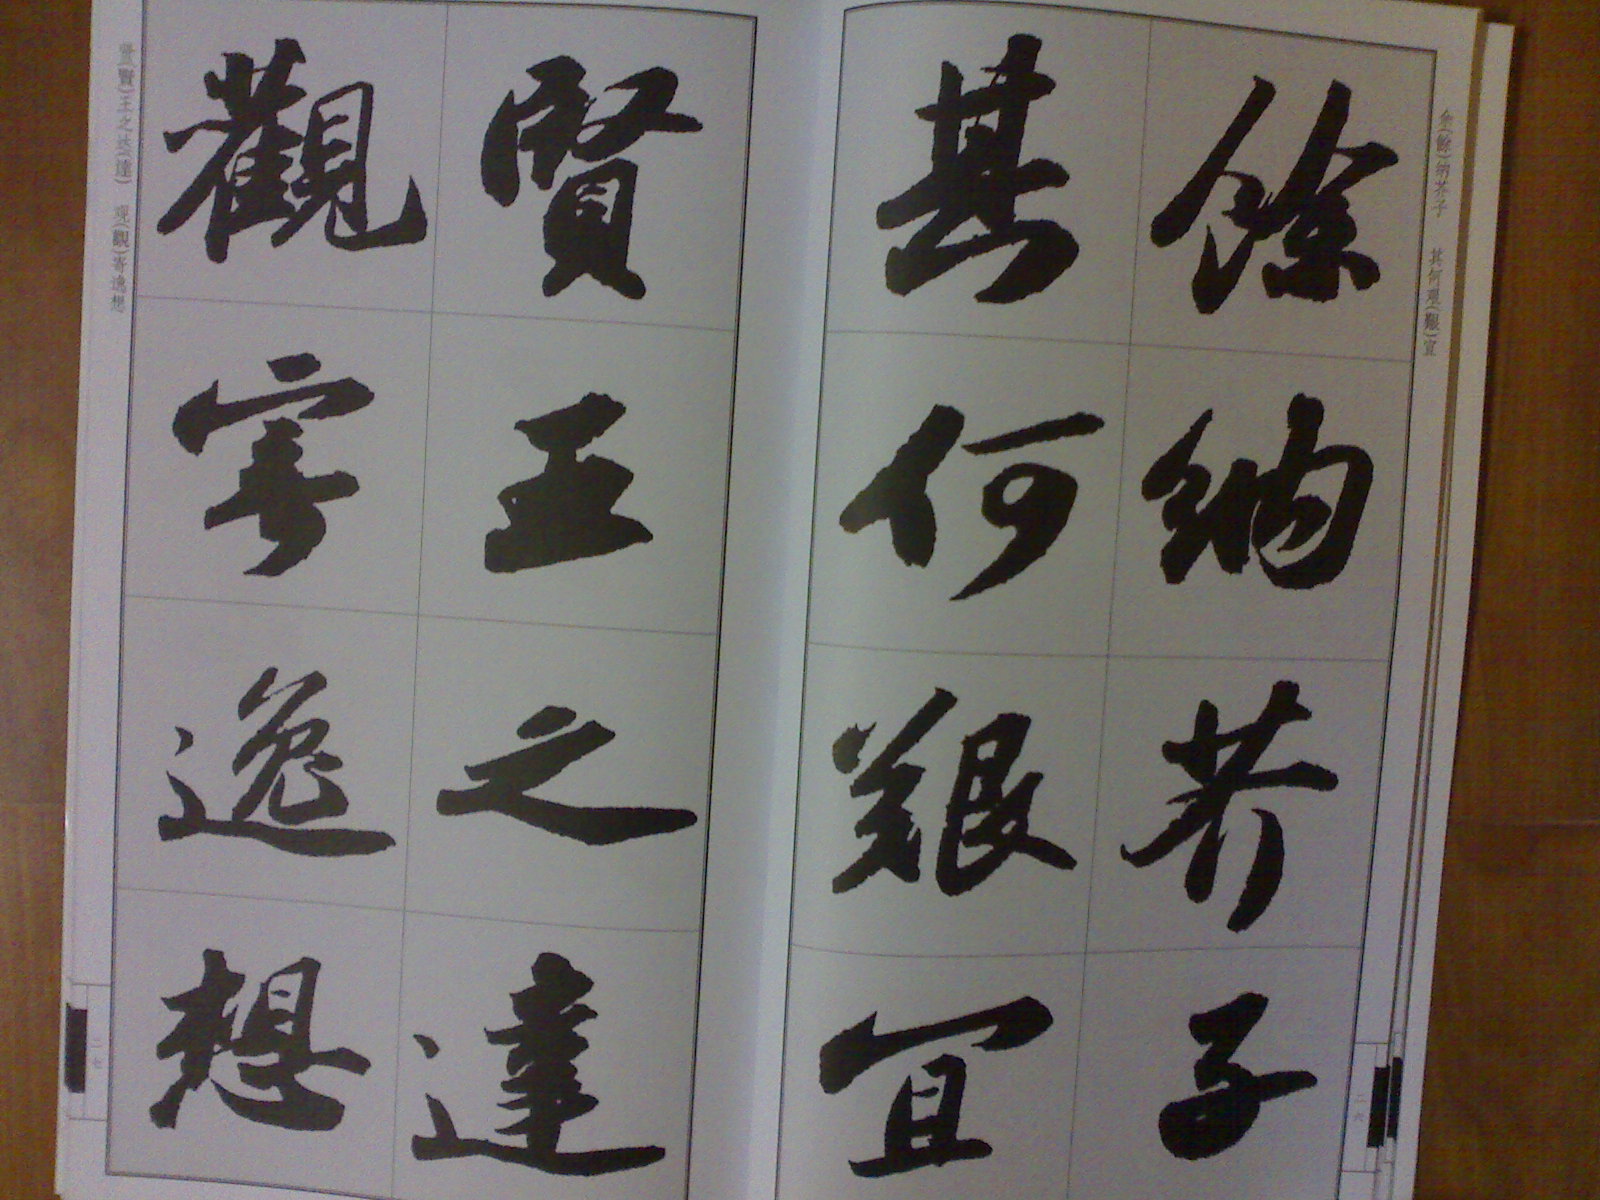 余(餘)纳芥子 其何艰(艱)宜
餘納芥子
其何艱宜
二六
贤(賢)王之达(達) 观(觀)寄逸想
賢王之達
觀寄逸想
二七